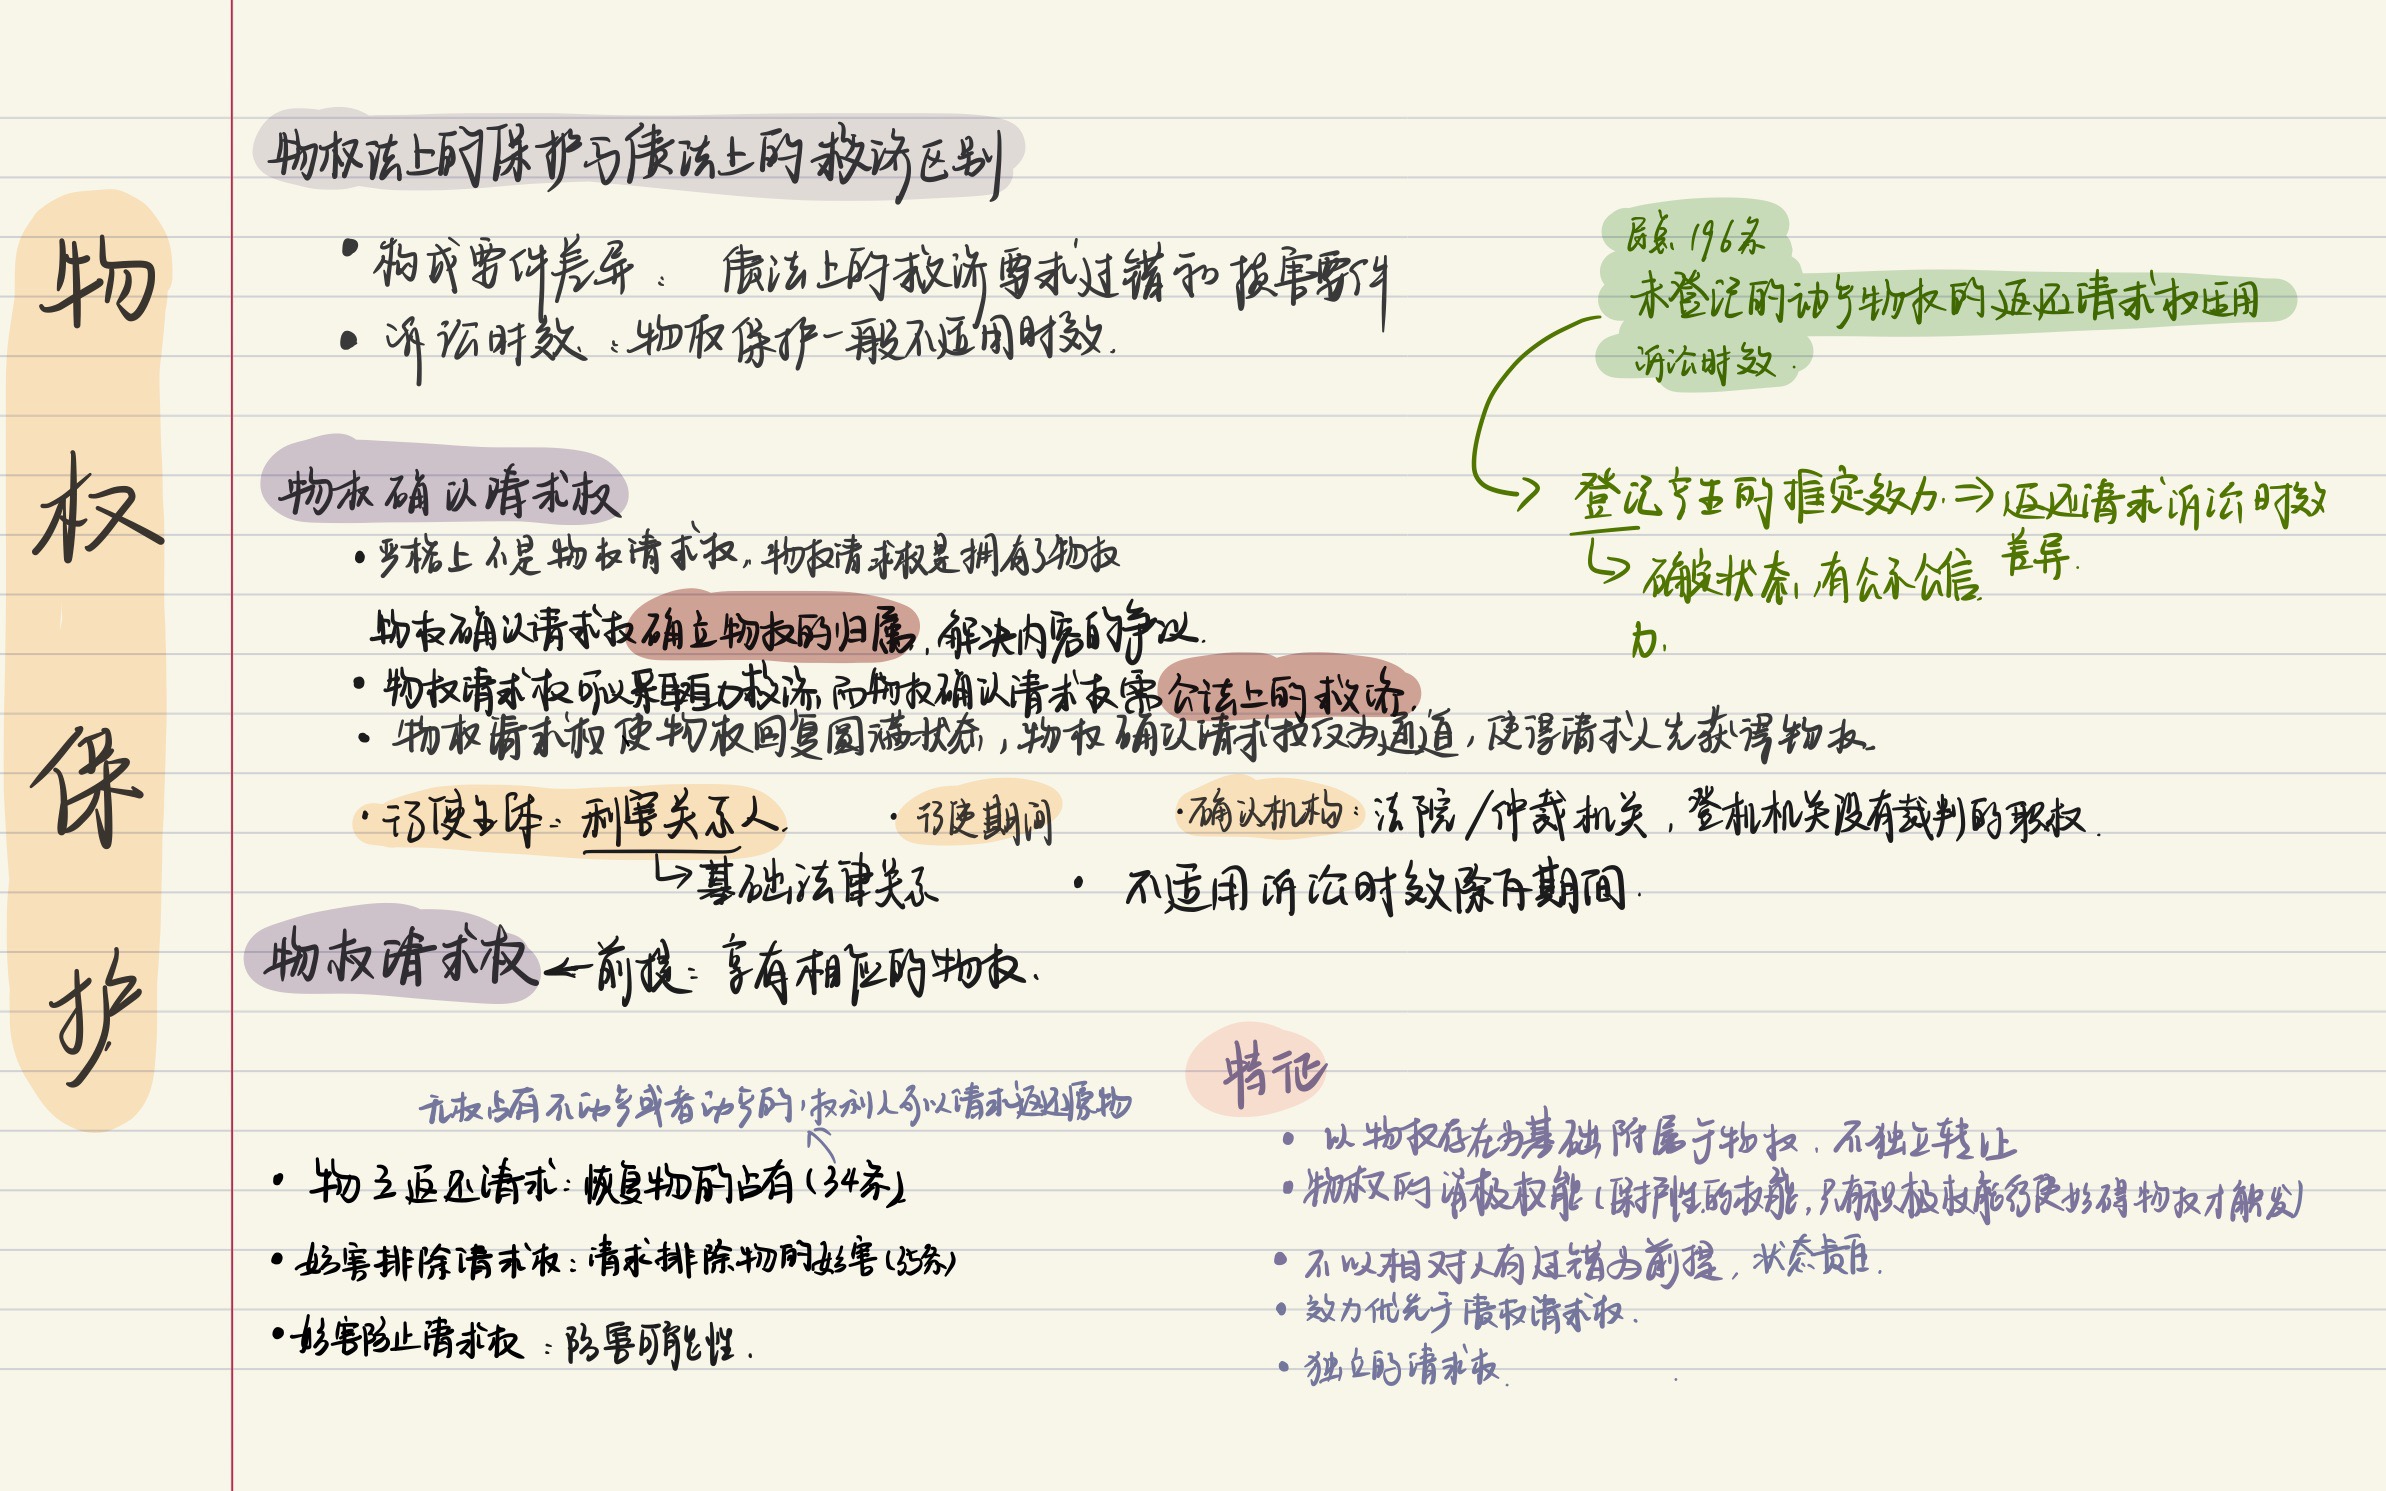 物权保护
物权法上的保护与债法上的救济区别
• 构成要件差异：债法上的救济要求过错和损害要件
• 诉讼时效：物权保护一般不适用时效.
196条
未登记的动产物权的返还请求权适用
诉讼时效.
登记产生的推定效力. ⇒ 返还请求诉讼时效
差异.
确定状态，有公示公信
力.
物权确认请求权
• 严格上不是物权请求权，物权请求权是拥有了物权
物权确认请求权确立物权的归属，解决内容的争议.
• 物权请求权可以采取自力救济，而物权确认请求权需公法上的救济.
• 物权请求权使物权回复圆满状态，物权确认请求权仅为通道，使得请求人先获得物权.
• 行使主体：利害关系人. • 行使期间 • 确认机构：法院/仲裁机关，登机机关没有裁判的职权.
↳ 基础法律关系 • 不适用诉讼时效除斥期间.
物权请求权 ← 前提：享有相应的物权.
无权占有不动产或者动产的，权利人可以请求返还原物
• 物之返还请求：恢复物的占有（34条）
• 妨害排除请求权：请求排除物的妨害（35条）
• 妨害防止请求权：防害可能性.
特征
• 以物权存在为基础附属于物权，不独立转让
• 物权的消极权能（保护性的权能，只有积极权能行使妨碍物权才触发）
• 不以相对人有过错为前提，状态责任.
• 效力优先于债权请求权.
• 独立的请求权.